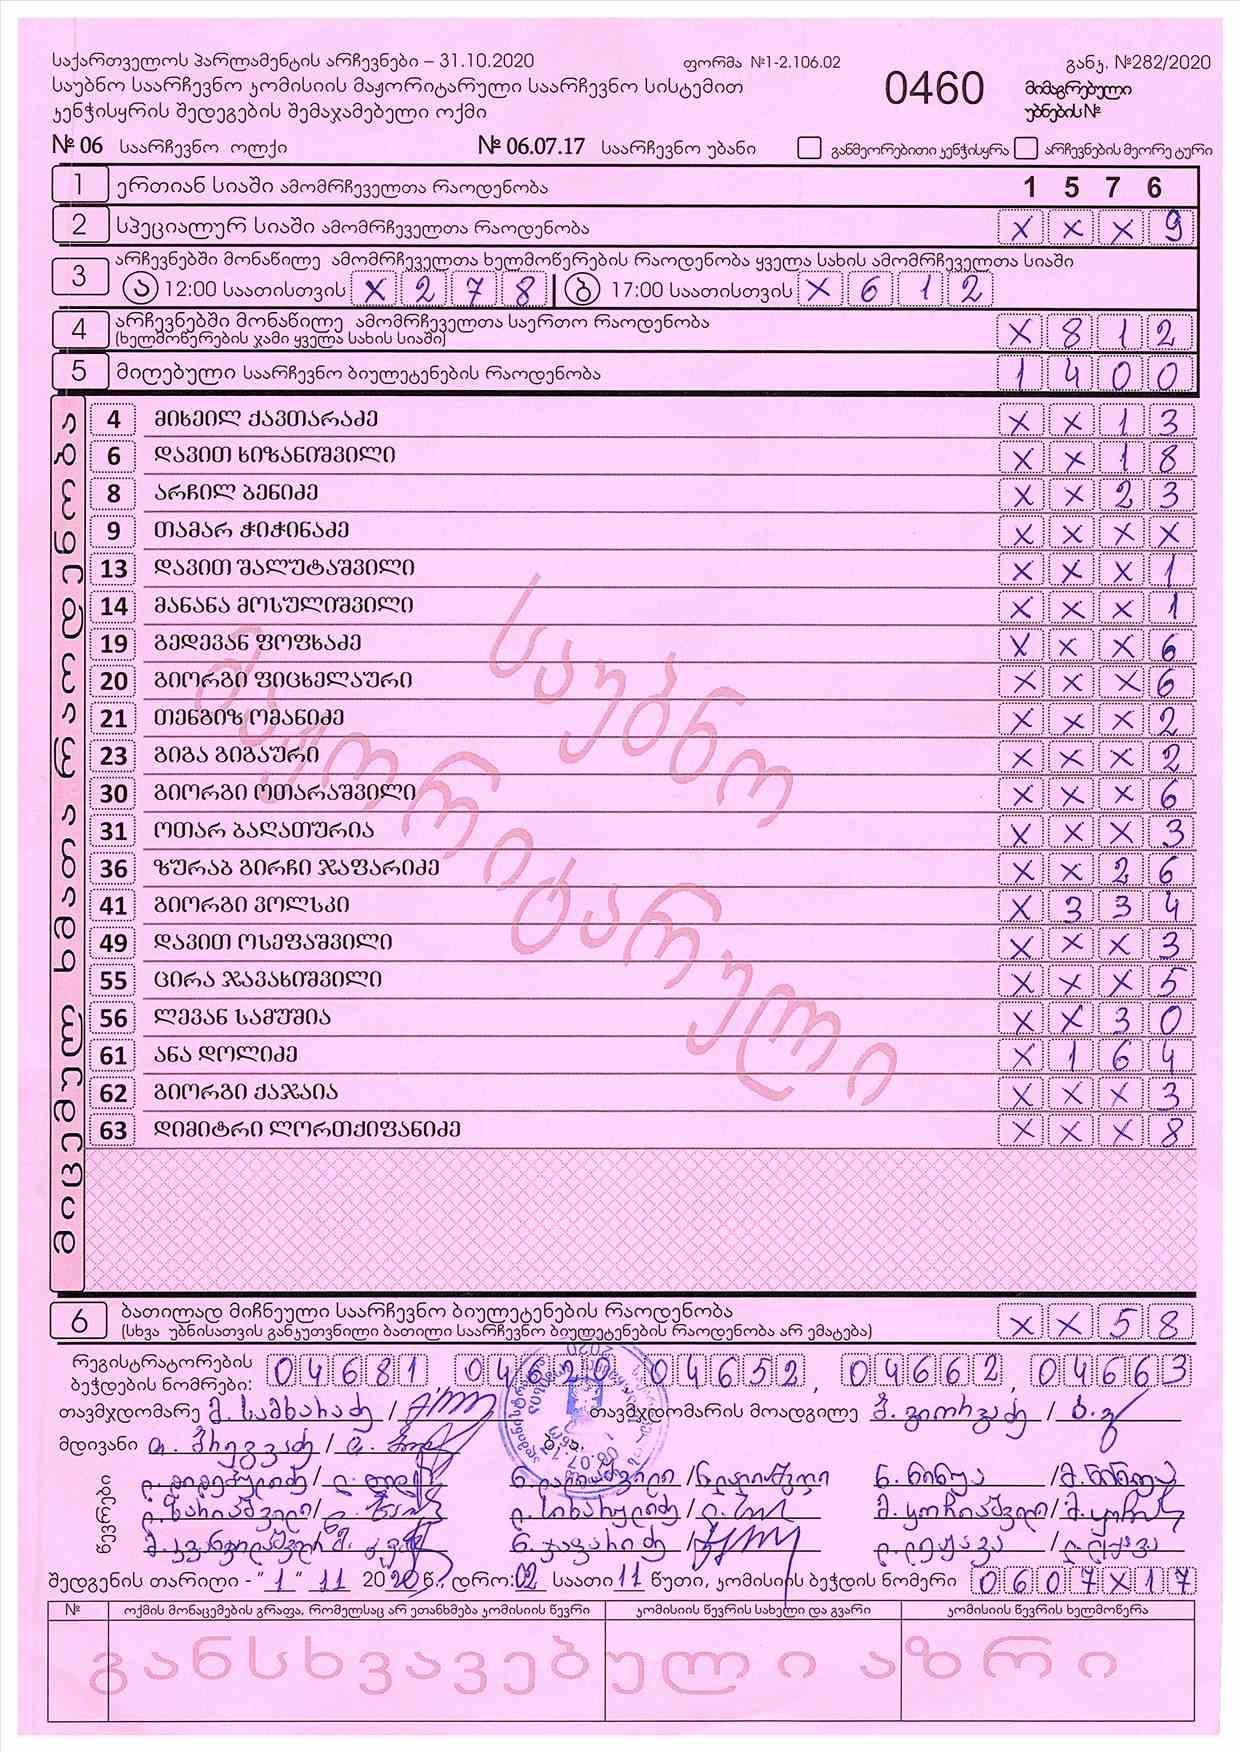 საქართველოს პარლამენტის არჩევნები – 31.10.2020 ფორმა №1-2.106.02 განკ. №282/2020
საუბნო საარჩევნო კომისიის მაჟორიტარული საარჩევნო სისტემით 0460 მიმაგრებული
კენჭისყრის შედეგების შემაჯამებელი ოქმი უბნების№
№ 06 საარჩევნო ოლქი № 06.07.17 საარჩევნო უბანი განმეორებითი კენჭისყრა არჩევნების მეორე ტური
1 ერთიან სიაში ამომრჩეველთა რაოდენობა 1 5 7 6
2 სპეციალურ სიაში ამომრჩეველთა რაოდენობა X X X 9
3 არჩევნებში მონაწილე ამომრჩეველთა ხელმოწერების რაოდენობა ყველა სახის ამომრჩეველთა სიაში
ა 12:00 საათისთვის X 2 7 8 ბ 17:00 საათისთვის X 6 1 2
4 არჩევნებში მონაწილე ამომრჩეველთა საერთო რაოდენობა X 8 1 2
(ხელმოწერების ჯამი ყველა სახის სიაში)
5 მიღებული საარჩევნო ბიულეტენების რაოდენობა 1 4 0 0
მიცემულ ხმათა რაოდენობა
4 მიხეილ ქავთარაძე X X 1 3
6 დავით ხიზანიშვილი X X 1 8
8 არჩილ ბენიძე X X 2 3
9 თამარ ჭიჭინაძე X X X X
13 დავით შალუტაშვილი X X X 1
14 მანანა მოსულიშვილი X X X 1
19 გედევან ფოფხაძე X X X 6
20 გიორგი ფიცხელაური X X X 6
21 თენგიზ ომანიძე X X X 2
23 გიგა გიგაური X X X 2
30 გიორგი ოთარაშვილი X X X 6
31 ოთარ ბაღათურია X X X 3
36 ზურაბ გირჩი ჯაფარიძე X X 2 6
41 გიორგი ვოლსკი X 3 3 4
49 დავით ოსეფაშვილი X X X 3
55 ცირა ჯავახიშვილი X X X 5
56 ლევან სამუშია X X 3 0
61 ანა დოლიძე X 1 6 4
62 გიორგი ქაჯაია X X X 3
63 დიმიტრი ლორთქიფანიძე X X X 8
საუბნო
მაჟორიტარული
6 ბათილად მიჩნეული საარჩევნო ბიულეტენების რაოდენობა X X 5 8
(სხვა უბნისათვის განკუთვნილი ბათილი საარჩევნო ბიულეტენების რაოდენობა არ ემატება)
რეგისტრატორების
ბეჭდების ნომრები: 04681 04620 04652, 04662, 04663
თავმჯდომარე მ. სამხარაძე / თავმჯდომარის მოადგილე მ. გიორგაძე /
მდივანი
წევრები
ლ. დიდებულიძე / ნ. ნინუა /
ლ. სიხარულიძე /
ნ. ჯაფარიძე /
შედგენის თარიღი - "1" 11 2020 წ., დრო: 02 საათი 11 წუთი, კომისიის ბეჭდის ნომერი 0607X17
№ ოქმის მონაცემების გრაფა, რომელსაც არ ეთანხმება კომისიის წევრი კომისიის წევრის სახელი და გვარი კომისიის წევრის ხელმოწერა
განსხვავებული აზრი